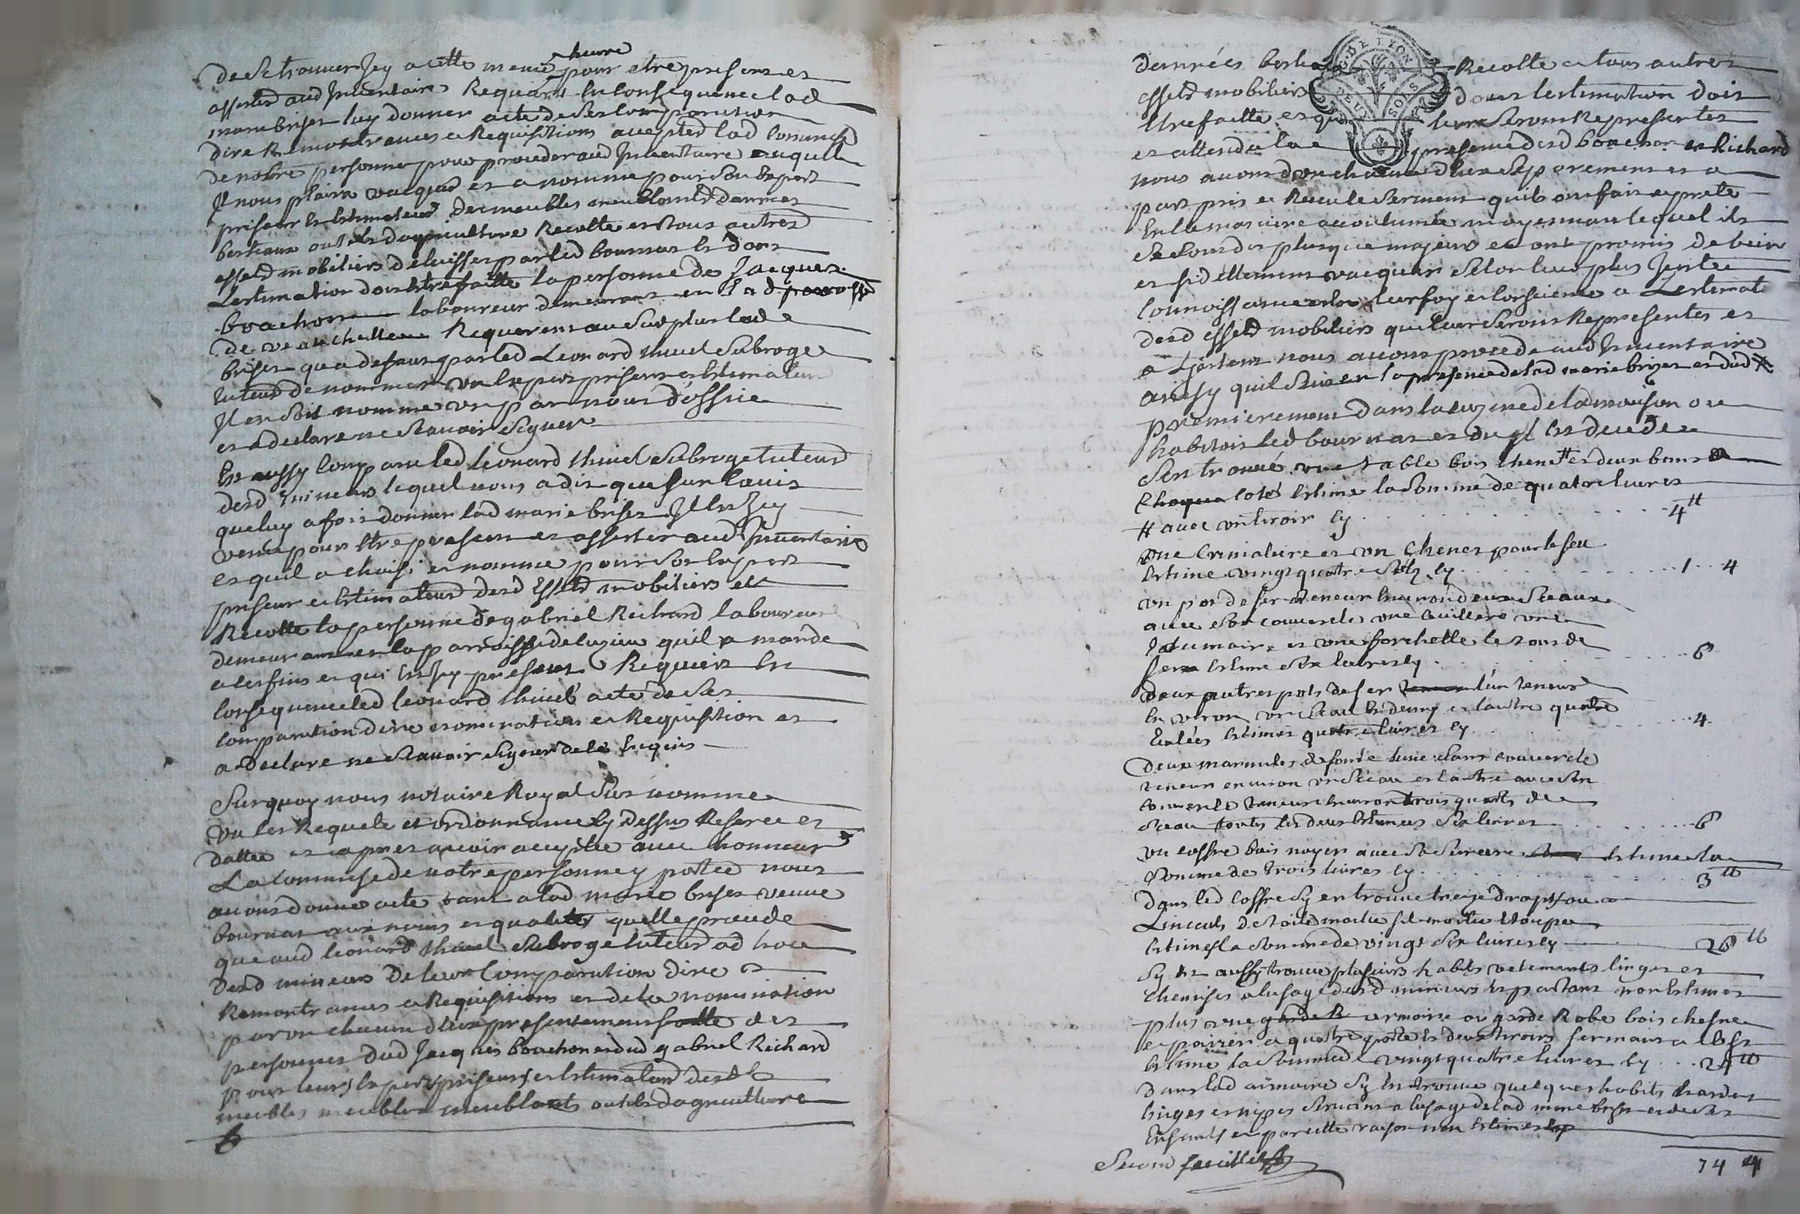 heure
de se trouver Icy a cette meme pour etre present et
assister aud Inventaire Requart En Consequence lad
marie briser luy donner acte de ses comparution
dire Remontrances et Requisitions accepter lad Commise
de notre personne pour proceder aud Inventaire auquel
Il nous plaira vacquer et a nomme pour son Expert
priseur et Estimateur Des meubles meublants danrees
bestiaux outils dagriculture Recolte et tous autres
effets mobiliers delaisses par led bournat Et dont
Lestimation doit Etre faitte la personne de Jacques
bouchon laboureur demeurant en lad
de Requerant au surplus lad
briser qua defaut par led Léonard subroge
tuteur de nommer un Expert priseur et Estimateur
Il en soit nomme un par nous d'office
et a declare ne scavoir signer
Et aussy Comparu led léonard subroge tuteur
desd mineurs lequel nous a dit que sur lavis
que luy a fait donner lad marie briser Il Est Icy
venu pour Etre present et assister aud Inventaire
et quil a choisi et nomme pour son Expert
priseur et Estimateur desd Effets mobiliers et
Recolte la personne de gabriel Richard laboureur
demeurant en la paroisse de quil a mandé
a ces fins et qui Est Icy present Requiert En
Consequence led léonard acte de ses
comparution dire et nomination et Requisition et
a declare ne scavoir signer de ce Enquis
Surquoy nous notaire Royal sus nomme
vu les Requete et ordonnance Cy dessus Referée et
dattée et apres avoir acceptée avec honneur
La Commise de notre personne y portée nous
avons donne acte tant a lad marie briser veuve
bournat aux noms et qualités quelle procede
que aud leonard subroge tuteur ad hoc
desd mineurs De leur Comparution dire
Remontrances et Requisitions et de la nomination
par un chacun deux presentement faitte des
personnes dud Jacques bouchon et dud gabriel Richard
pour leurs Experts priseurs et Estimateurs desd
meubles meublants outils dagriculture
danrées bestiaux Recolte et tous autres
effets mobiliers dont lestimation doit
Etre faitte et qui leur seront Representes
et attendu la presence desd bouchon et Richard
nous avons d'un chacun d'eux separement
pris et Recu le serment quils ont fait et preté
En la maniere accoutumée moyennant lequel ils
se sont dis plus que majeurs et ont promis de bien
et fidellement vacquer selon leur plus Juste
connoissance leur foy et Conscience a Lestimat
desd effets mobiliers qui leur seront Representes et
a L'jnstant nous avons procede aud Inventaire
ainsy quil suit en la presence de lad marie briser et dud
premierement dans la cuizine de la maison ou
habitoit led bournat et ou il Est decede
sest trouvé une table bois chene # et deux bancs
Chaque coté Estime la somme de quatre livres
# avec un tiroir Cy 4 ₶
une Cremaliere et un Chenet pour le feu
Estime vingt quatre sols Cy 1 4
un pot de fer teneur Environ deux seaux
avec son couvercle une cuilliere une
et une forchette le tout de
fer Estime six livres Cy 6
deux autres pots de fer l'un teneur
Environ un seau Et demy et lautre quatre
Estimes quatre livres Cy 4
Deux marmites de fonte lune sans couvercle
teneur environ un seau et lautre avec son
couvercle teneur Environ trois quarts de
seau toutes les deux Estimees six livres 6
un coffre bois noyer avec sa serrure Estime la
somme de trois livres Cy 3 ₶
Dans led coffre sy en trouve treize draps ou
Linceuls de toile moitie fil moitie Etoupe
Estimes la somme de vingt six livres Cy 26 ₶
Sy Est aussy trouve plusieurs habits vetements linges et
chemises a lusage desd mineurs Et partant non Estimes
plus une garde R armoire ou garde Robe bois chesne
a quatre portes Et deux tiroirs fermant a clefs
Estime la somme de vingt quatre livres Cy 24 ₶
Dans lad armoire sy Est trouve quelques habits hardes
linges et nipes servant a lusage de lad marie briser et de ses
Enfants et par cette raison non Estimes
Second feuillet
74 4
DE LYON
DEUX SOLS